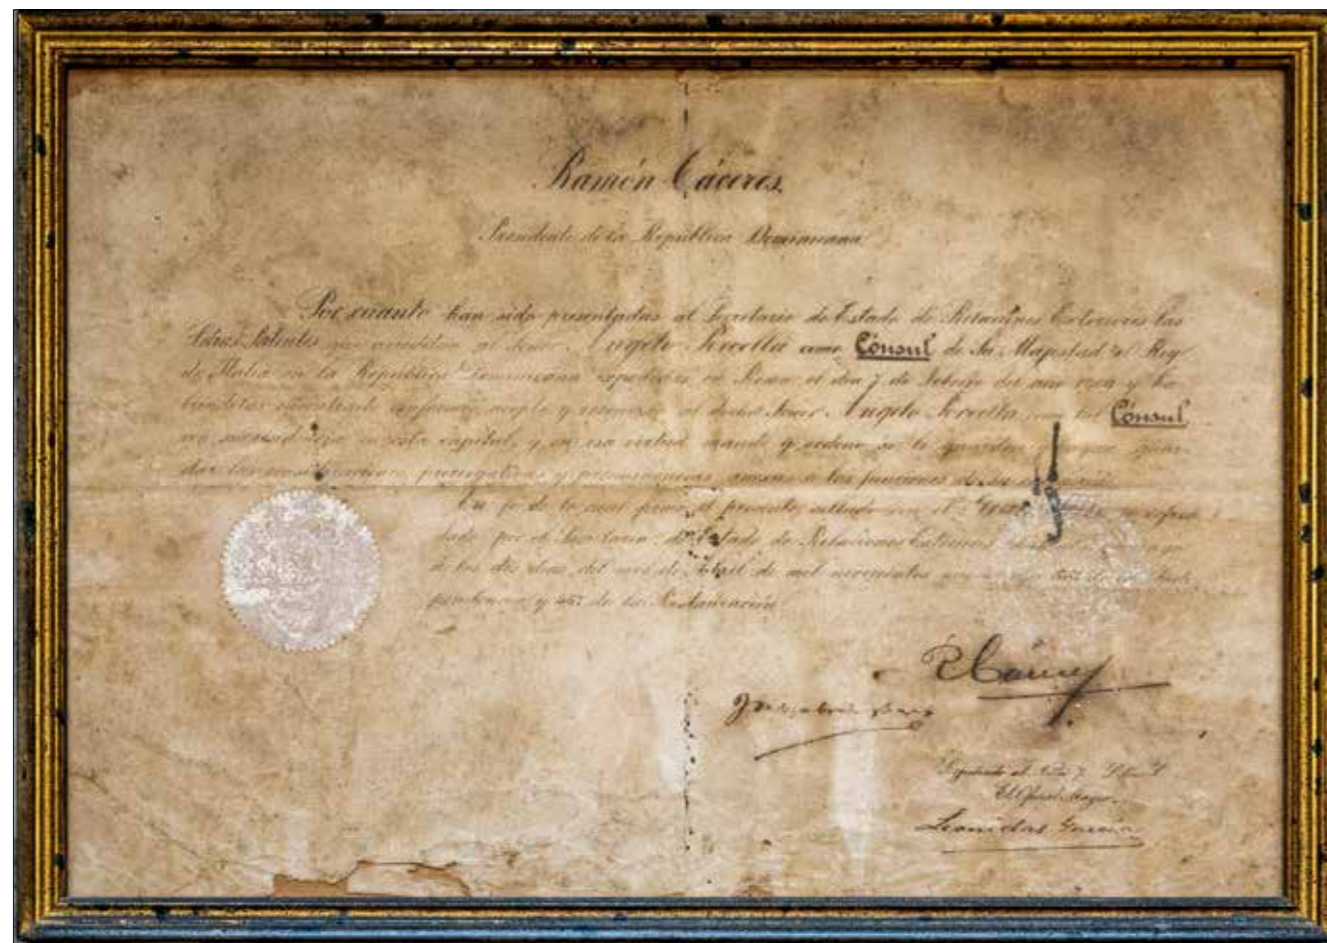 Ramón Cáceres
Presidente de la República Dominicana
Por cuanto han sido presentadas al Secretario de Estado de Relaciones Exteriores las
Letras Patentes que acreditan al Señor Angelo Porcella como Cónsul de Su Majestad el Rey
de Italia en la República Dominicana expedidas en Roma el dia 7 de Febrero del año 1909 y ha
biendolas encontrado conformes, acepto y reconozco al dicho Señor Angelo Porcella como tal Cónsul
con residencia en esta capital, y en esa virtud mando y ordeno se le guarden y hagan guar
dar las consideraciones, prerrogativas y preeminencias anexas a las funciones de su
En fé de lo cual firmo el presente, sellado con el Gran refren
dado por el Secretario de Estado de Relaciones Exteriores
á los dos dias del mes de Abril de mil novecientos de la Inde
pendencia y 46º de la Restauración
R Cáceres
Registrado al Folio 7
El Oficial Mayor
Leonidas García